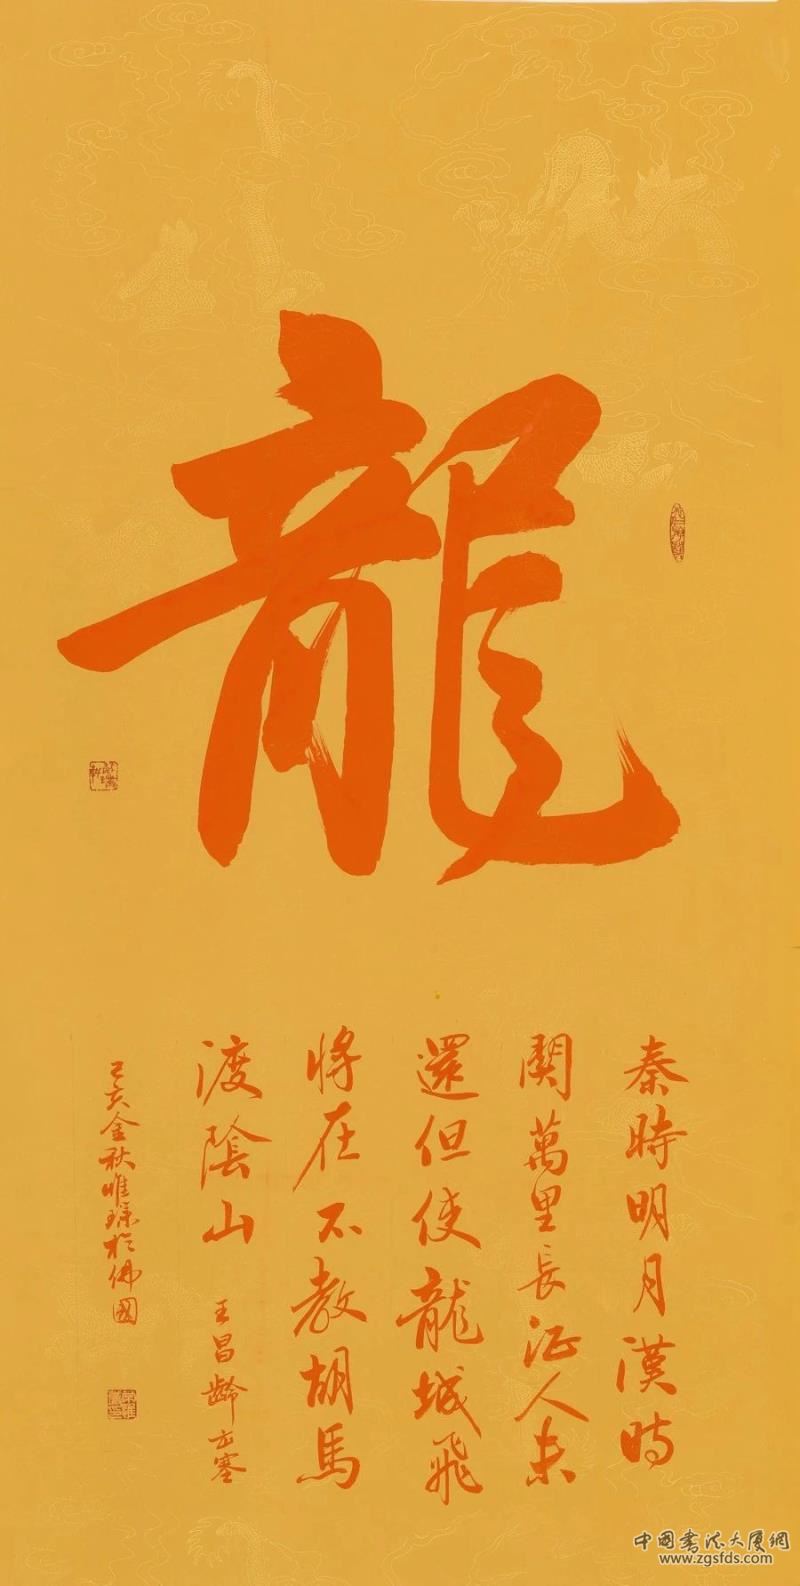 龍
秦時明月漢時
関萬里長征人未
還但使龍城飛
將在不教胡馬
渡陰山
王昌齡出塞
己亥金秋惟琛於佛國
中國書法大厦網
www.zgsfds.com